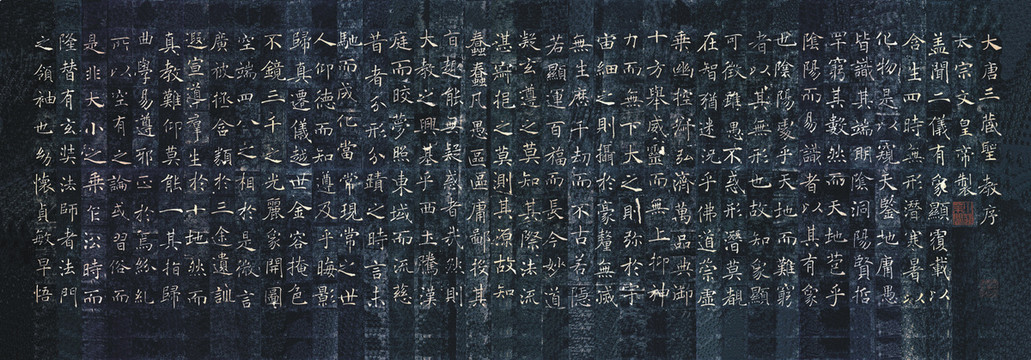 大唐三藏聖教序
太宗文皇帝製
盖聞二儀有象顯覆載以
含生四時無形潛寒暑以
化物是以窺天鑒地庸愚
皆識其端明陰洞陽賢哲
罕窮其數然而天地苞乎
陰陽而易識者以其有象
也陰陽處乎天地而難窮
者以其無形也故知象顯
可徵雖愚不惑形潛莫覩
在智猶迷況乎佛道崇虛
乘幽控寂弘濟萬品典御
十方舉威靈而無上抑神
力而無下大之則弥於宇
宙細之則攝於豪釐無滅
無生歷千劫而不古若隱
若顯運百福而長今妙道
凝玄遵之莫知其際法流
湛寂挹之莫測其源故知
蠢蠢凡愚區區庸鄙投其
旨趣能無疑惑者哉然則
大教之興基乎西土騰漢
庭而皎夢照東域而流慈
昔者分形分蹟之時言未
馳而成化當常現常之世
人仰德而知遵及乎晦景
歸真遷儀越世金容掩色
不鏡三千之光麗象開圖
空端四八之相於是微言
廣被拯含類於三途遺訓
遐宣導羣生於十地然而
真教難仰莫能一其指歸
曲學易遵邪正於焉紛糺
所以空有之論或習俗而
是非大小之乘乍訟時而
隆替有玄奘法師者法門
之領袖也幼懷真敏早悟